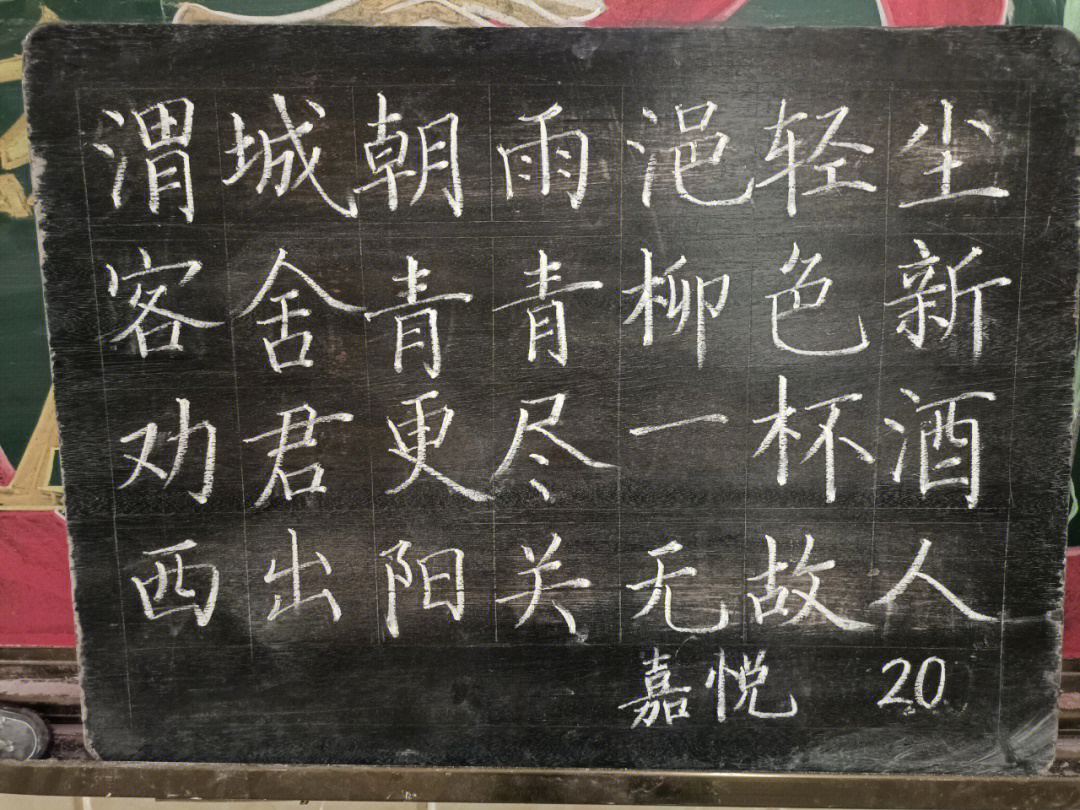 渭城朝雨浥轻尘
客舍青青柳色新
劝君更尽一杯酒
西出阳关无故人
嘉悦 20